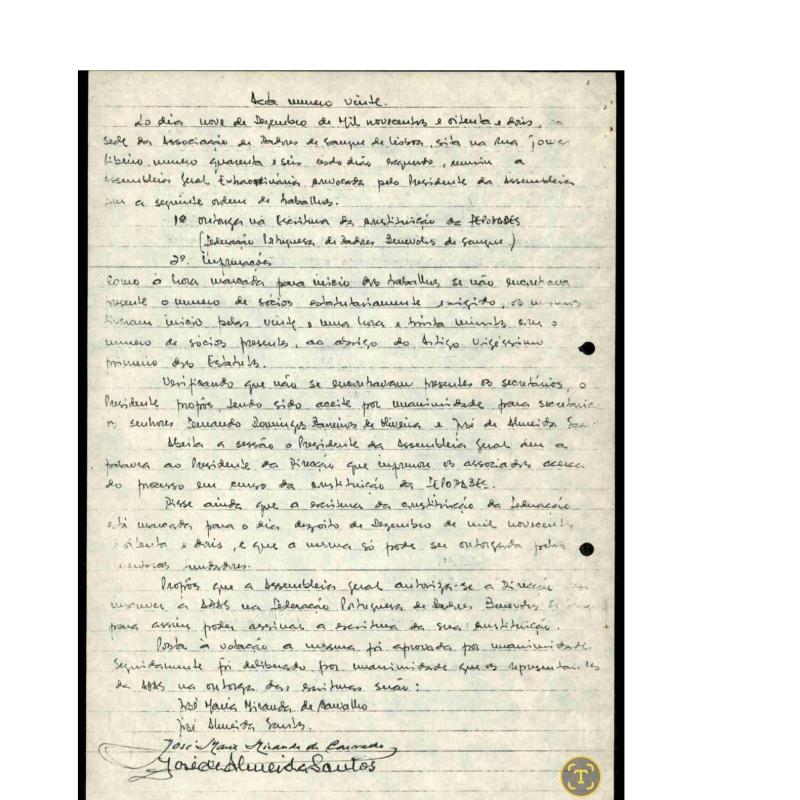 Acta numero vinte.
Ao dia nove de Dezembro de Mil novecentos e oitenta e dois, na
sede da Associação de Dadores de Sangue de Lisboa, sita na Rua
Ribeiro, numero quarenta e seis segundo, reuniu a
Assembleia Geral Extraordinária convocada pelo Presidente da Assembleia
com a seguinte ordem de trabalhos.
1º outorga na Escritura da constituição da FEPODABES
(Federação Portuguesa de Dadores Benevolos de Sangue)
2º. Informações
Como à hora marcada para inicio dos trabalhos se não encontrava
presente o numero de sócios estatutariamente exigido, os mesmos
tiveram inicio pelas vinte e uma hora e trinta minutos com o
numero de sócios presentes, ao abrigo do Artigo Vigéssimo
primeiro dos Estatutos.
Verificando que não se encontravam presentes os secretários, o
Presidente propôs, tendo sido aceite por unanimidade para secretariar
os senhores Fernando Domingos de Oliveira e José de Almeida
Aberta a sessão o Presidente da Assembleia Geral deu a
palavra ao Presidente da Direcção que informou os associados acerca
do processo em curso da constituição da FEPODABES.
Disse ainda que a escritura da constituição da Federação
está marcada para o dia dezoito de Dezembro de mil novecentos
oitenta e dois, e que a mesma só pode ser outorgada pelos
Propôs que a Assembleia Geral autoriza-se a Direcção
inscrever a ADAS na Federação Portuguesa de Dadores Benevolos de
para assim poder assinar a escritura da sua constituição.
Posta à votação a mesma foi aprovada por unanimidade.
Seguidamente foi deliberado por unanimidade que os representantes
da ADAS na outorga das escrituras serão:
José Maria Miranda de Carvalho
José Almeida Santos.
José Maria Miranda de Carvalho
José de Almeida Santos